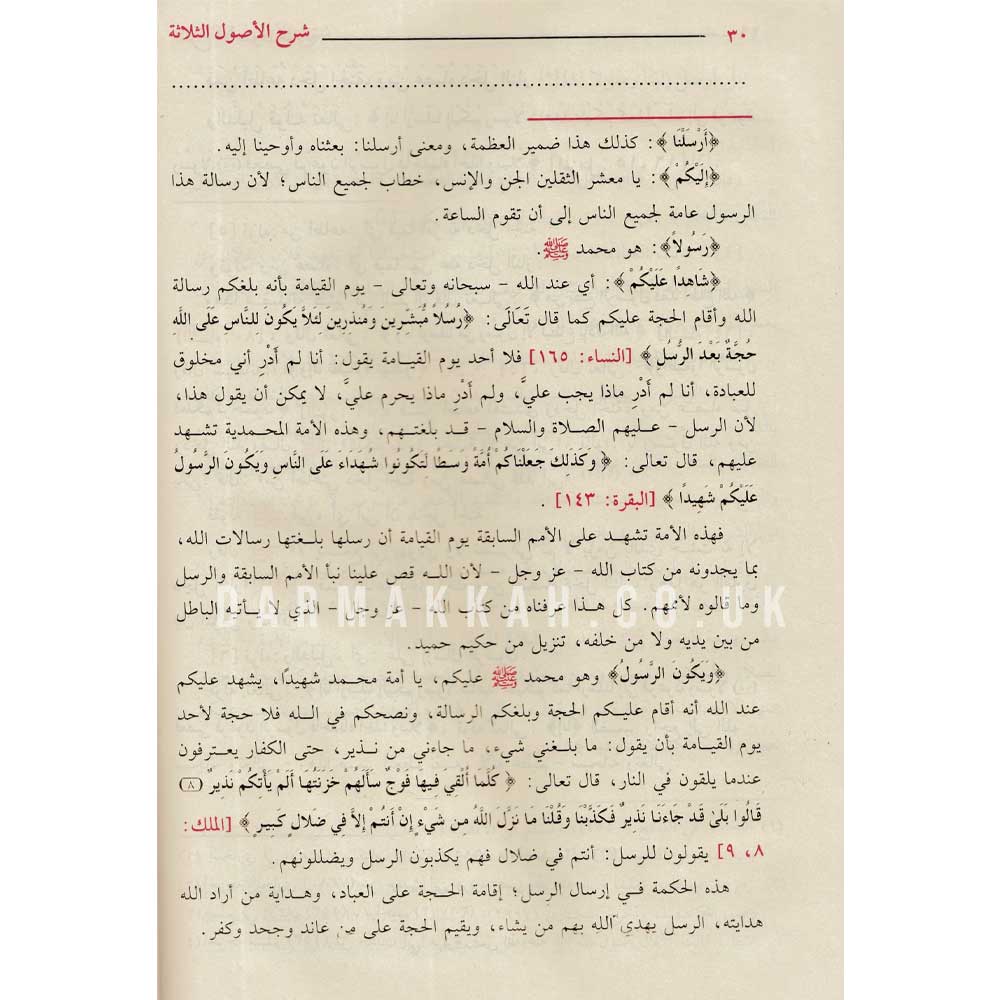 ٣٠ شرح الأصول الثلاثة
﴿أَرْسَلْنَا﴾: كذلك هذا ضمير العظمة، ومعنى أرسلنا: بعثناه وأوحينا إليه.
﴿إِلَيْكُمْ﴾: يا معشر الثقلين الجن والإنس، خطاب لجميع الناس؛ لأن رسالة هذا
الرسول عامة لجميع الناس إلى أن تقوم الساعة.
﴿رَسُولاً﴾: هو محمد ﷺ.
﴿شَاهِدًا عَلَيْكُمْ﴾: أي عند الله - سبحانه وتعالى - يوم القيامة بأنه بلغكم رسالة
الله وأقام الحجة عليكم كما قال تَعَالَى: ﴿رُسُلاً مُّبَشِّرِينَ وَمُنذِرِينَ لِئَلاَّ يَكُونَ لِلنَّاسِ عَلَى اللَّهِ
حُجَّةٌ بَعْدَ الرُّسُلِ﴾ [النساء: ١٦٥] فلا أحد يوم القيامة يقول: أنا لم أَدْرِ أني مخلوق
للعبادة، أنا لم أَدْرِ ماذا يجب عليَّ، ولم أَدْرِ ماذا يحرم عليَّ، لا يمكن أن يقول هذا،
لأن الرسل - عليهم الصلاة والسلام - قد بلغتهم، وهذه الأمة المحمدية تشهد
عليهم، قال تعالى: ﴿وَكَذَلِكَ جَعَلْنَاكُمْ أُمَّةً وَسَطًا لِّتَكُونُوا شُهَدَاءَ عَلَى النَّاسِ وَيَكُونَ الرَّسُولُ
عَلَيْكُمْ شَهِيدًا﴾ [البقرة: ١٤٣].
فهذه الأمة تشهد على الأمم السابقة يوم القيامة أن رسلها بلغتها رسالات الله،
بما يجدونه من كتاب الله - عز وجل - لأن الله قص علينا نبأ الأمم السابقة والرسل
وما قالوه لأممهم. كل هذا عرفناه من كتاب الله - عز وجل - الذي لا يأتيه الباطل
DARMAKKAH.CO.UK
من بين يديه ولا من خلفه، تنزيل من حكيم حميد.
﴿وَيَكُونَ الرَّسُولُ﴾ وهو محمد ﷺ عليكم، يا أمة محمد شهيدًا، يشهد عليكم
عند الله أنه أقام عليكم الحجة وبلغكم الرسالة، ونصحكم في الله فلا حجة لأحد
يوم القيامة بأن يقول: ما بلغني شيء، ما جاءني من نذير، حتى الكفار يعترفون
عندما يلقون في النار، قال تعالى: ﴿كُلَّمَا أُلْقِيَ فِيهَا فَوْجٌ سَأَلَهُمْ خَزَنَتُهَا أَلَمْ يَأْتِكُمْ نَذِيرٌ (٨)
قَالُوا بَلَىٰ قَدْ جَاءَنَا نَذِيرٌ فَكَذَّبْنَا وَقُلْنَا مَا نَزَّلَ اللَّهُ مِن شَيْءٍ إِنْ أَنتُمْ إِلاَّ فِي ضَلالٍ كَبِيرٍ﴾ [الملك:
٨، ٩] يقولون للرسل: أنتم في ضلال فهم يكذبون الرسل ويضللونهم.
هذه الحكمة في إرسال الرسل؛ إقامة الحجة على العباد، وهداية من أراد الله
هدايته، الرسل يهدي الله بهم من يشاء، ويقيم الحجة على من عاند وجحد وكفر.